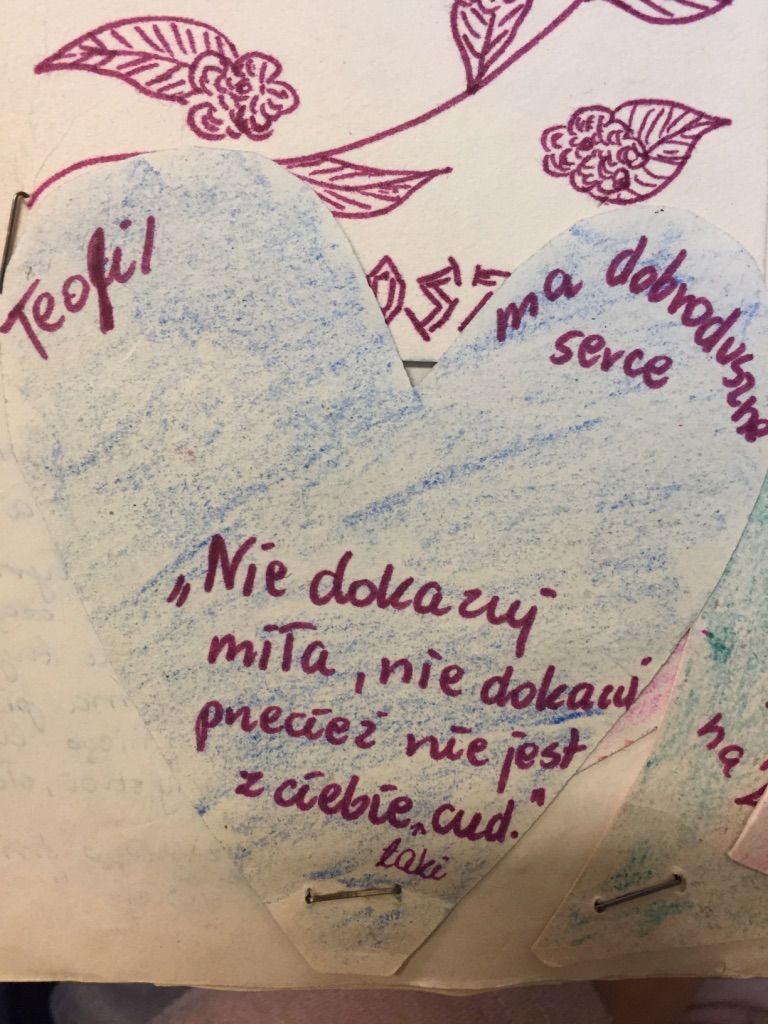 Teofil
ma dobroduszne
serce
„Nie dokazuj
miła, nie dokazuj
przecież nie jest
z ciebie „cud."
taki